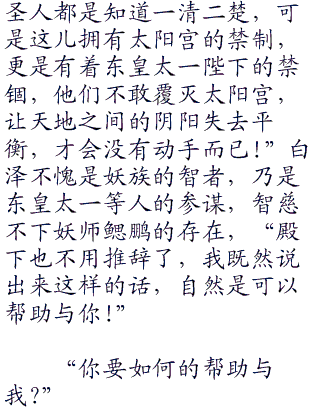 圣人都是知道一清二楚，可
是这儿拥有太阳宫的禁制，
更是有着东皇太一陛下的禁
锢，他们不敢覆灭太阳宫，
让天地之间的阴阳失去平
衡，才会没有动手而已！”白
泽不愧是妖族的智者，乃是
东皇太一等人的参谋，智慈
不下妖师鳃鹏的存在，“殿
下也不用推辞了，我既然说
出来这样的话，自然是可以
帮助与你！”
“你要如何的帮助与
我？”